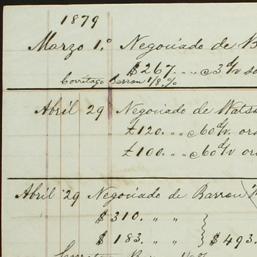 1879
Marzo 1.º Negociado de B
$267. .. c 3 d/v so
Corretage Barron 1/8 %
Abril 29 Negociado de Watso
£120. .. c 60 d/v. or
£100. .. c 60 d/v. or
Abril 29 Negociado de Barron
$310. " "
$183. " " } $493.